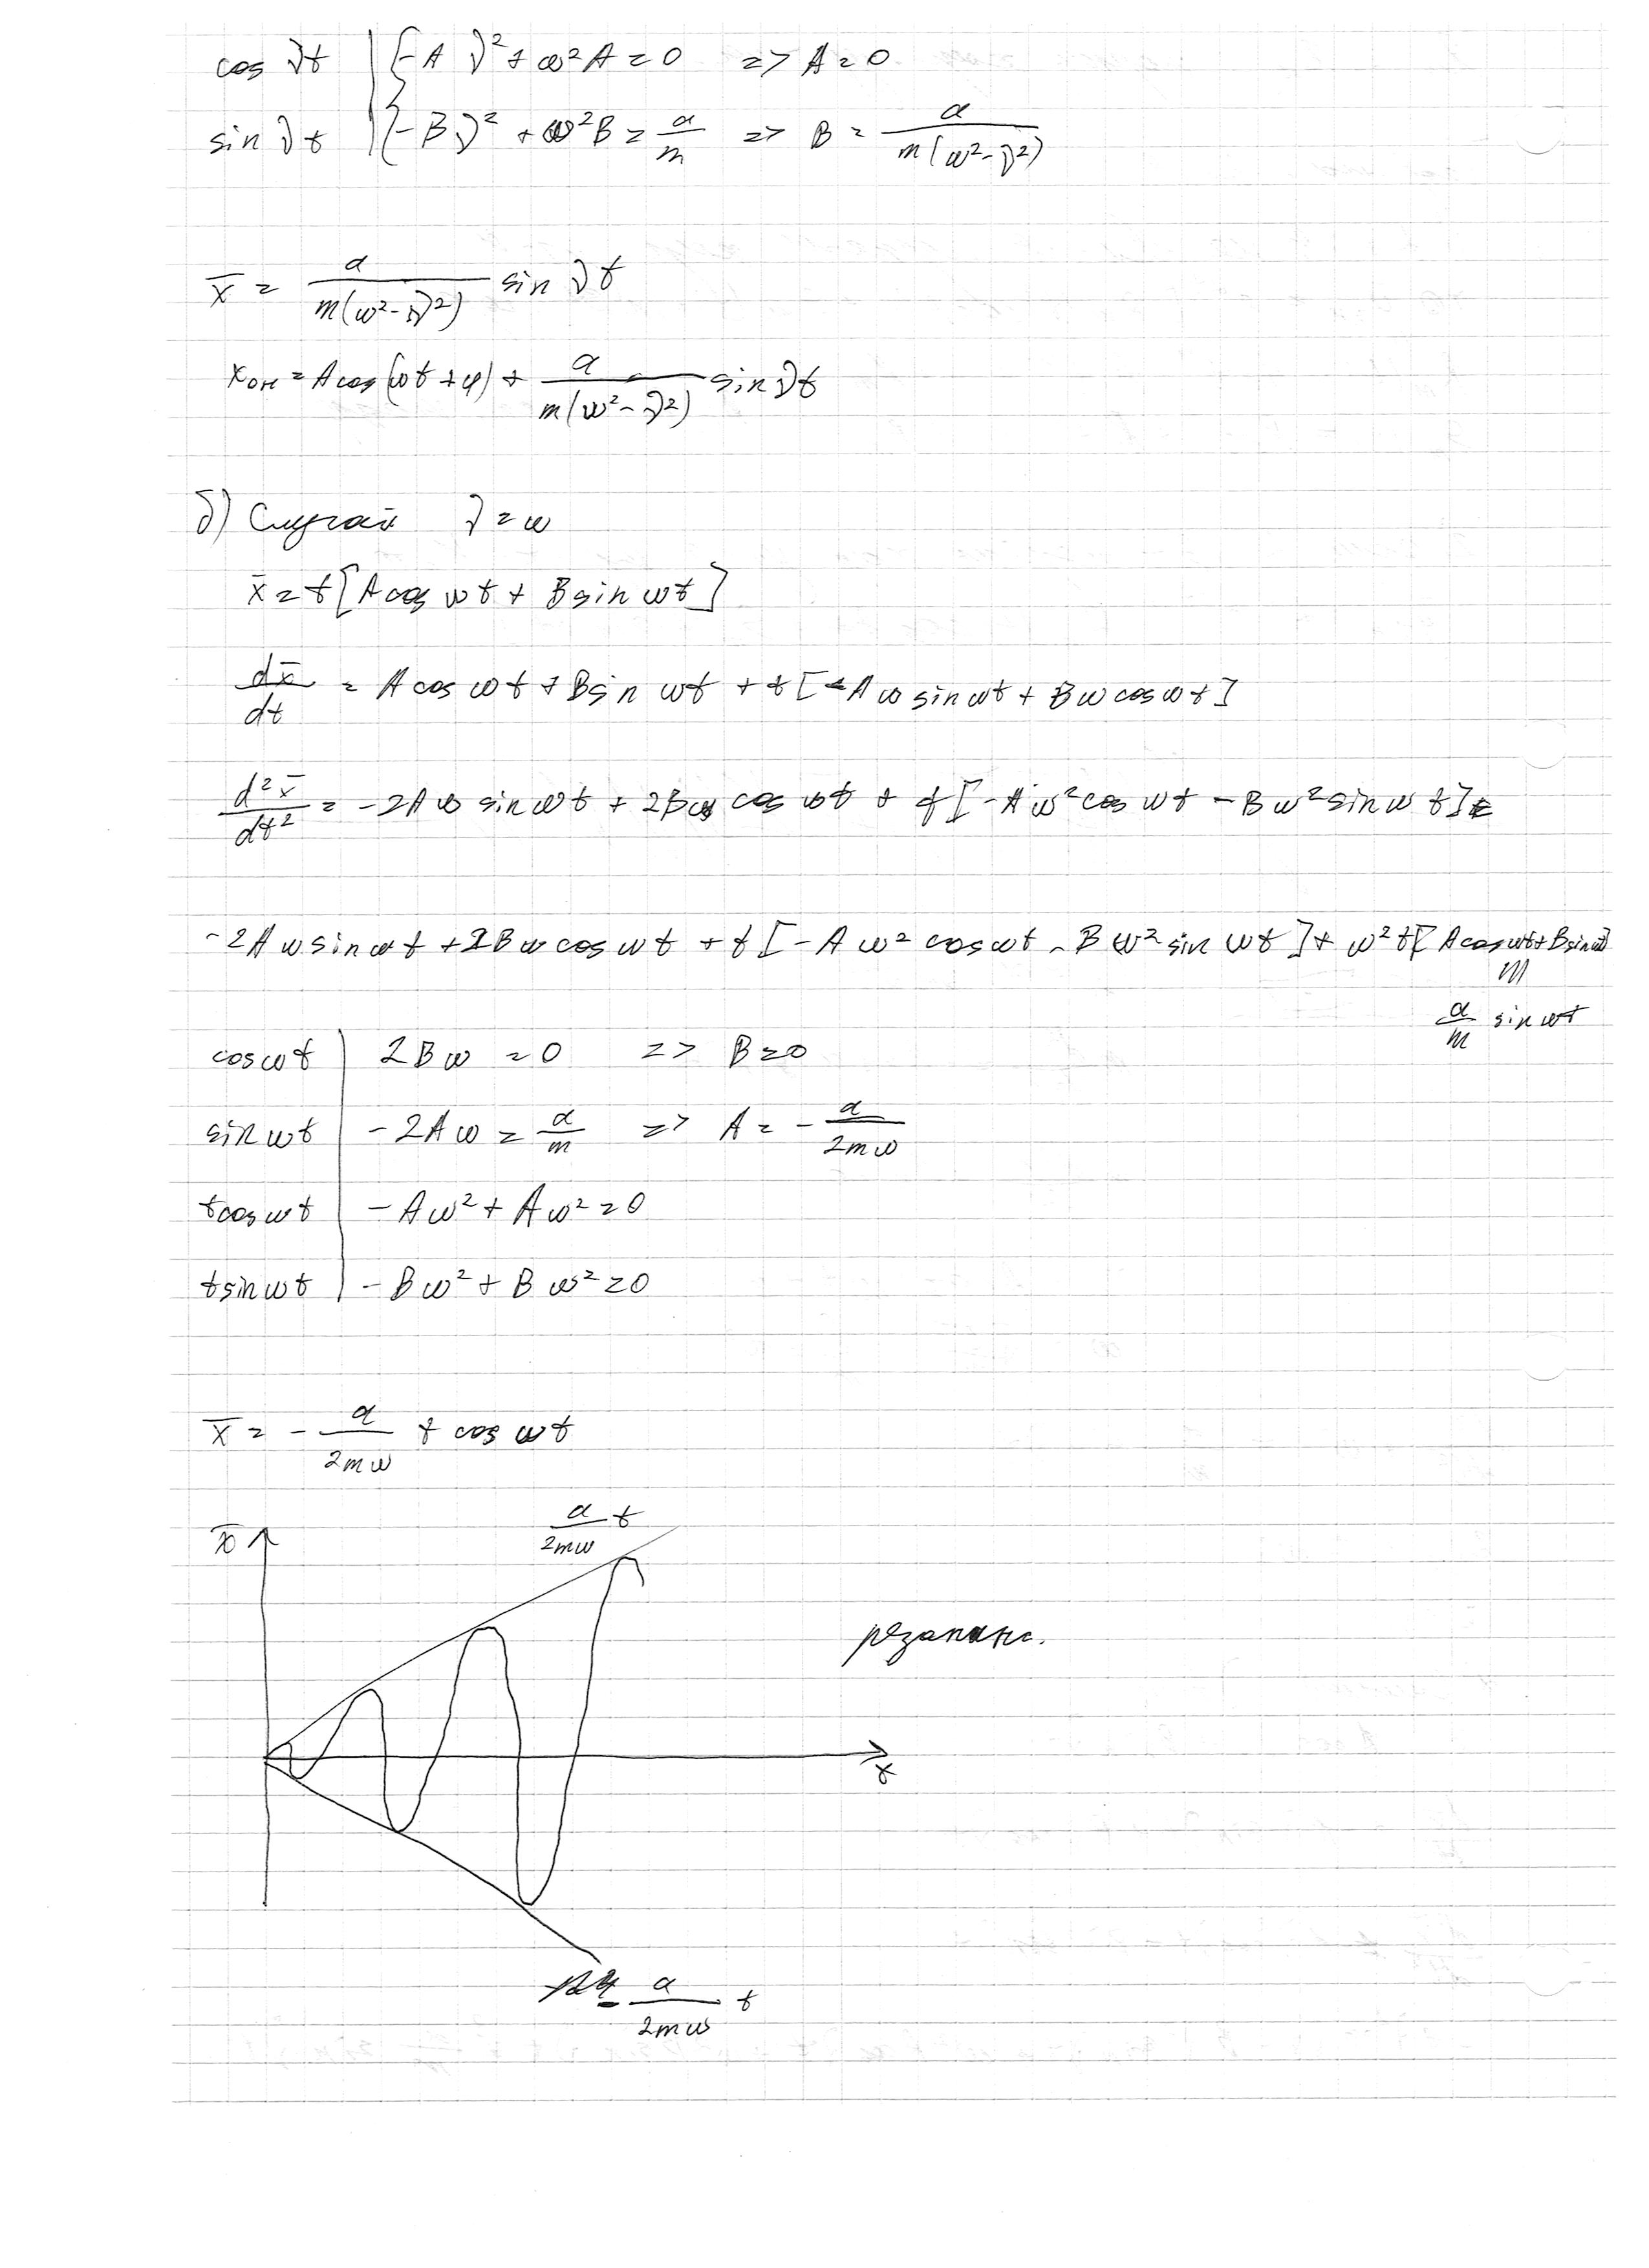 cos νt | { -Aν² + ω²A = 0 => A = 0
sin νt | { -Bν² + ω²B = a/m => B = a/(m(ω²-ν²))
x̄ = a/(m(ω²-ν²)) sin νt
xон = A cos(ωt + φ) + a/(m(ω²-ν²)) sin νt
б) Случай ν = ω
x̄ = t[A cos ωt + B sin ωt]
dx̄/dt = A cos ωt + B sin ωt + t[-Aω sin ωt + Bω cos ωt]
d²x̄/dt² = -2Aω sin ωt + 2Bω cos ωt + t[-Aω² cos ωt - Bω² sin ωt]
-2Aω sin ωt + 2Bω cos ωt + t[-Aω² cos ωt - Bω² sin ωt] + ω²t[A cos ωt + B sin ωt]
=
a/m sin ωt
cos ωt | 2Bω = 0 => B = 0
sin ωt | -2Aω = a/m => A = - a/(2mω)
t cos ωt | -Aω² + Aω² = 0
t sin ωt | -Bω² + Bω² = 0
x̄ = - a/(2mω) t cos ωt
x̄
a/(2mω) t
резонанс.
t
- a/(2mω) t